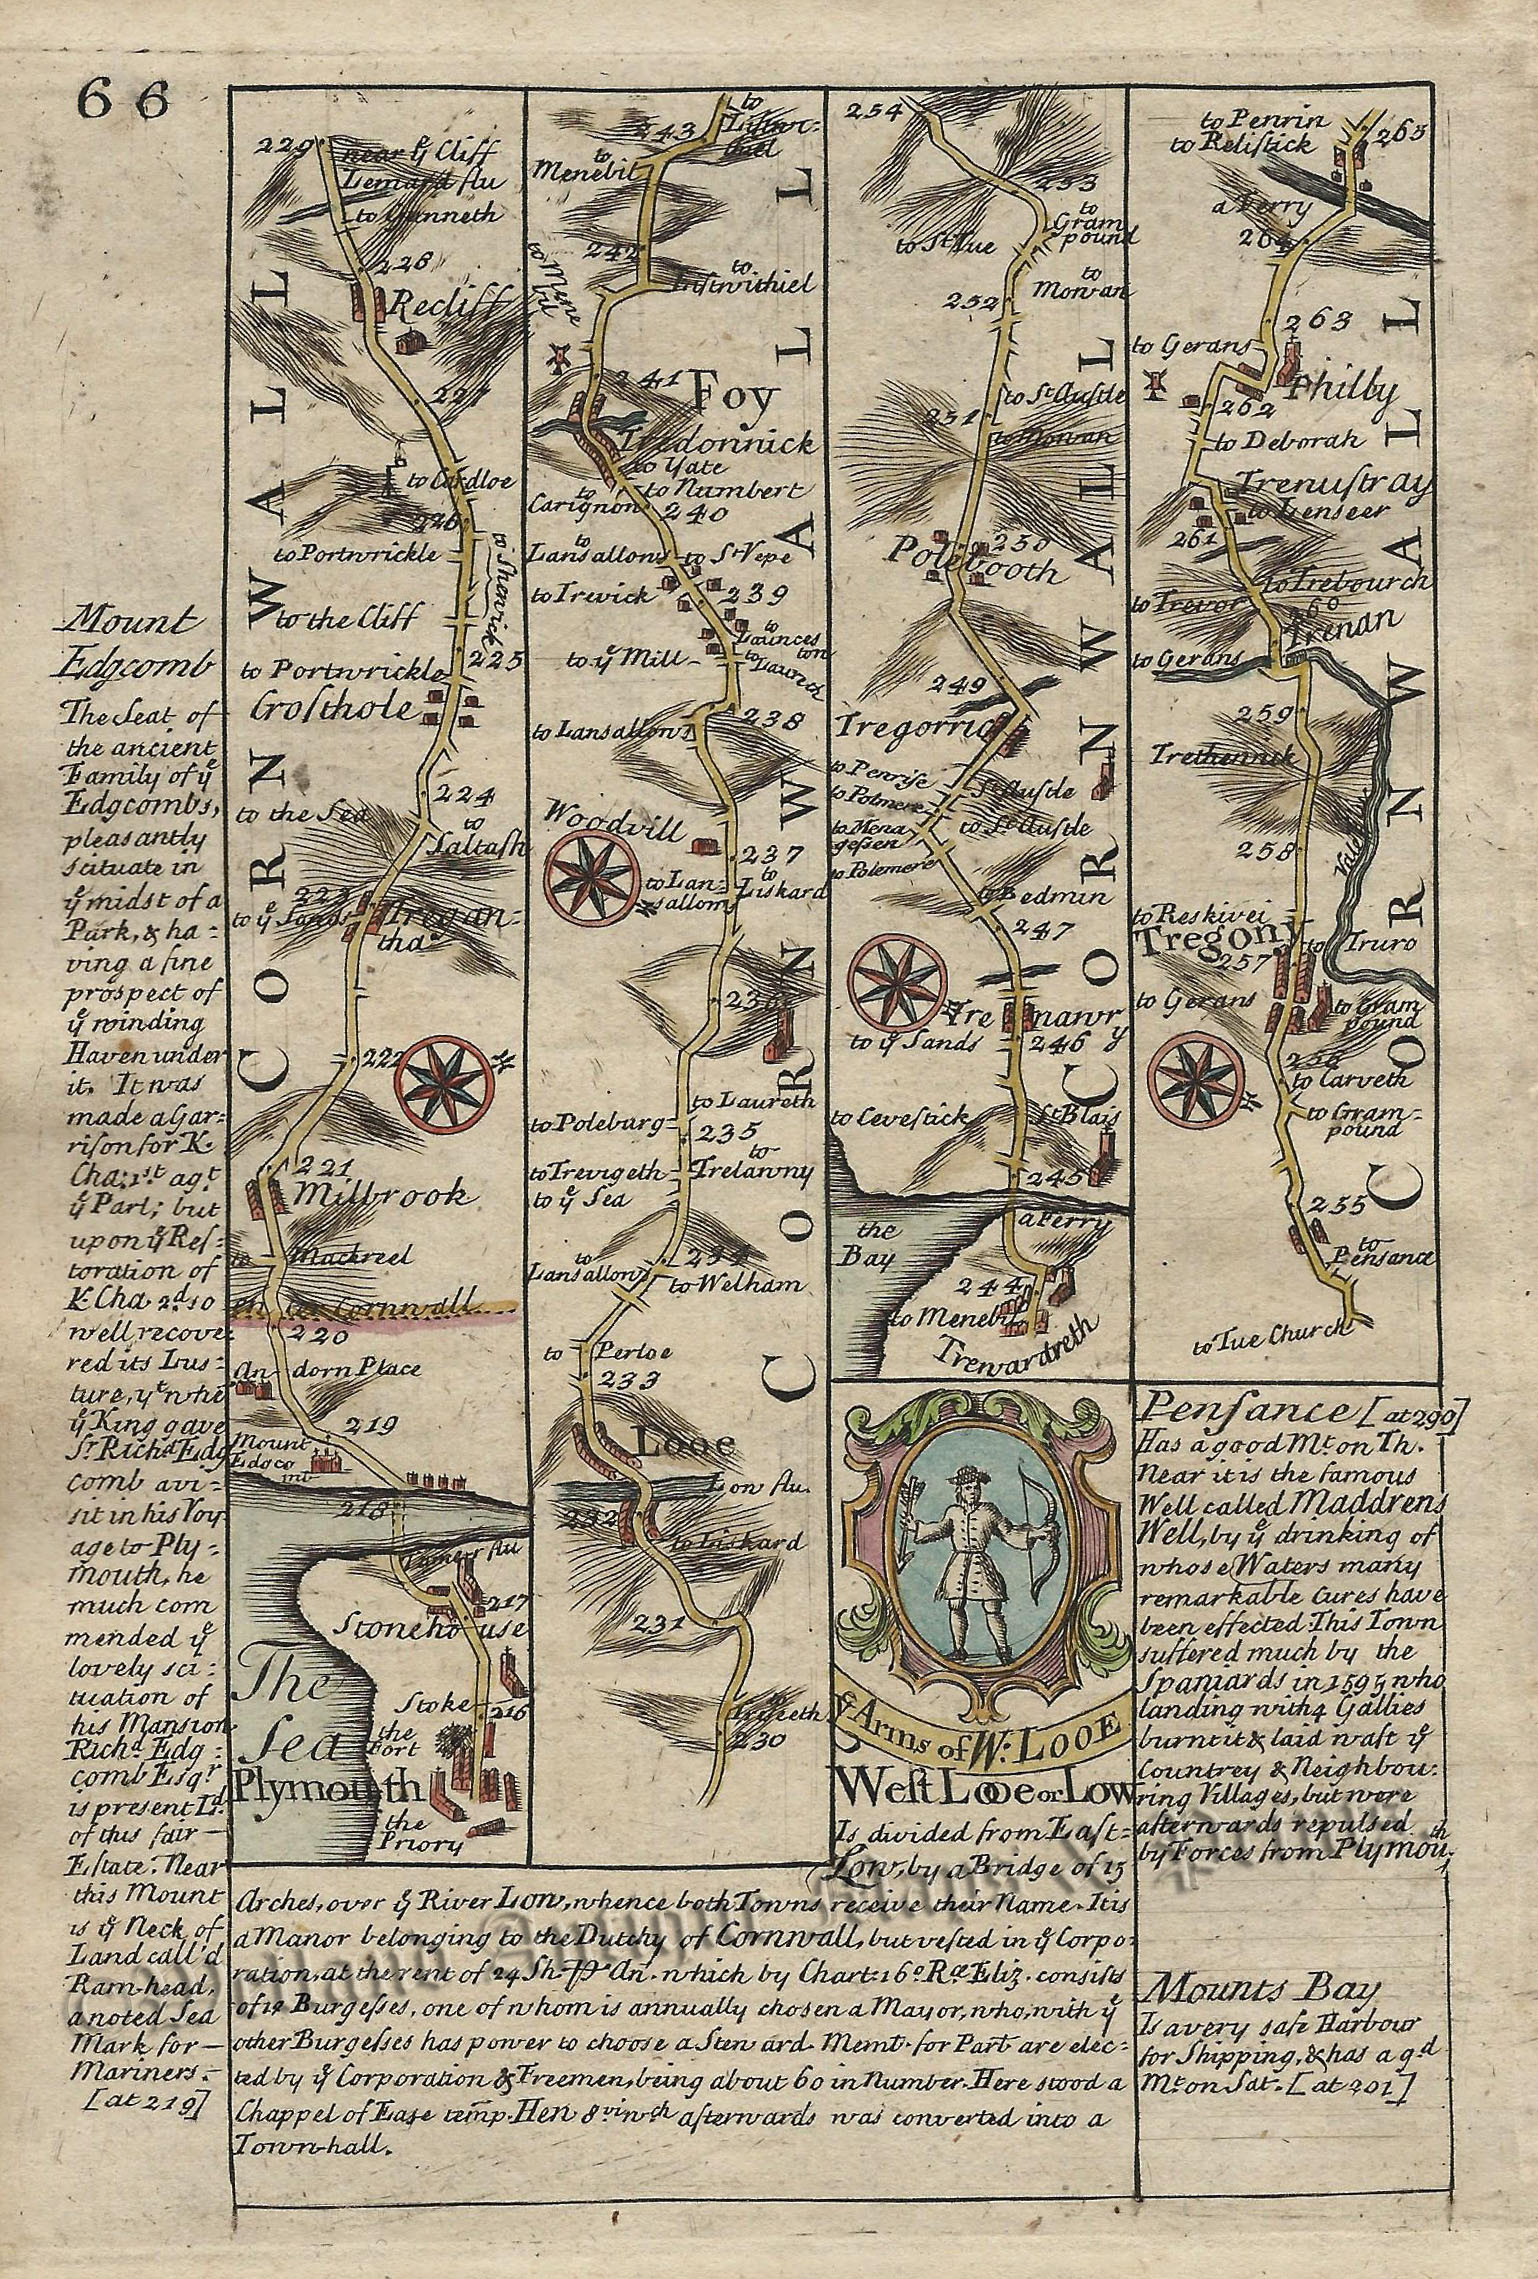 66
Mount
Edgcomb
The Seat of
the ancient
Family of yͤ
Edgcombs,
pleasantly
scituate in
yͤ midst of a
Park, & ha:
ving a fine
prospect of
yͤ winding
Haven under
it. It was
made a Gar:
riſon for K.
Cha: 1ˢᵗ agᵗ
yͤ Parl; but
upon yͤ Reſ-
toration of
K. Cha 2ᵈ so
well recove
red its Luſ-
ture, yᵗ whe
yͤ King gave
Sʳ Richᵈ Edg
comb a vi-
sit in his Voy
age to Ply-
mouth, he
much com
mended yͤ
lovely sci:
tuation of
his Mansion
Richᵈ Edg:
comb Esqʳ
is present Lᵈ
of this fair
Estate. Near
this Mount
is yͤ Neck of
Land call'd
Ram-head,
a noted Sea
Mark for
Mariners.
[at 219]
229
near yͤ Cliff
flu
to Gunneth
228
Recliff
227
to Cardloe
226
to Portwrickle
to Shevrick
to the Cliff
225
to Portwrickle
Croſthole
224
to the Sea
to
Saltaſh
223
to yͤ Sands
Tregan-
tha
222
221
Millbrook
to Mackreel
Enter Cornwall
220
An dorn Place
219
Mount
Edgco
mb
218
Tamer flu
217
Stonehouse
The
Sea
Stoke
216
the
Fort
Plymouth
the
Priory
CORNWALL
to
243
to
Menebil
242
to
Liſtwithiel
to Mene
bil
241
Foy
Tredonnick
to Yate
to Numbert
to
Carignon
240
to
Lansallons
to Sᵗ Vepe
to Trevick
239
to
Launces
ton
to yͤ Mill
to
Launch
238
to Lansallons
Woodvill
237
to Lan-
sallons
to
Liskard
236
to Laureth
to Poleburg
235
to
Trelawny
to Trevigeth
to yͤ Sea
234
to
Lansallons
to Welham
to Perloe
233
Looe
Low flu.
232
to Liskard
231
to
230
CORNWALL
254
253
to
Gram
pound
to Sᵗ Tue
to
Mowan
252
to Sᵗ Auſtle
251
to Mowan
250
Polebooth
249
Tregorrick
to Penriſe
Sᵗ Auſtle
to Polmere
to Mena
geſſen
to Sᵗ Auſtle
to Polemere
to Bedmin
247
Tre nawr
y
to yͤ Sands
246
to Leveſtick
Sᵗ Blais
245
the
Bay
a Ferry
244
to Menebil
Trewardreth
CORNWALL
to Penrin
to Reliſtick
265
a Ferry
264
263
to Gerans
Philby
262
to Deborah
Trenuſtray
to Lenseer
261
to Trebourch
to Trevor
260
Trenan
to Gerans
259
Trethennick
258
to Reskivei
Tregony
to Truro
257
to Gerans
to Gram
pound
256
to Carveth
to Gram-
pound
255
to
Pensance
to Tue Church
CORNWALL
yͤ Arms of W. LOOE
Weſt Looe or Low
Is divided from Eaſt-
Low, by a Bridge of 15
Arches, over yͤ River Low, whence both Towns receive their Name. It is
a Manor belonging to the Dutchy of Cornwall, but veſted in yͤ Corpo-
ration, at the rent of 24 Sh. ꝑ An. which by Chart: 16º Ræ Eliz. consiſts
of 12 Burgeſses, one of whom is annually chosen a Mayor, who, with yͤ
other Burgeſses has power to choose a Steward. Memᵗ. for Parᵗ are elec-
ted by yͤ Corporation & Freemen, being about 60 in Number. Here stood a
Chappel of Ease temp. Hen 8ᵛⁱ wᶜʰ afterwards was converted into a
Town-hall.
Penſance [at 290]
Has a good Mᵗ. on Th.
Near it is the famous
Well called Maddrens
Well, by yͤ drinking of
whose Waters many
remarkable Cures have
been effected. This Town
suffered much by the
Spaniards in 1595 who
landing with 4 Gallies
burnt it & laid waſt yͤ
Countrey & Neighbou:
ring Villages, but were
afterwards repulsed
by Forces from Plymouᵗʰ
Mounts Bay
Is a very safe Harbour
for Shipping, & has a gᵈ
Mᵗ on Sat. [at 291]